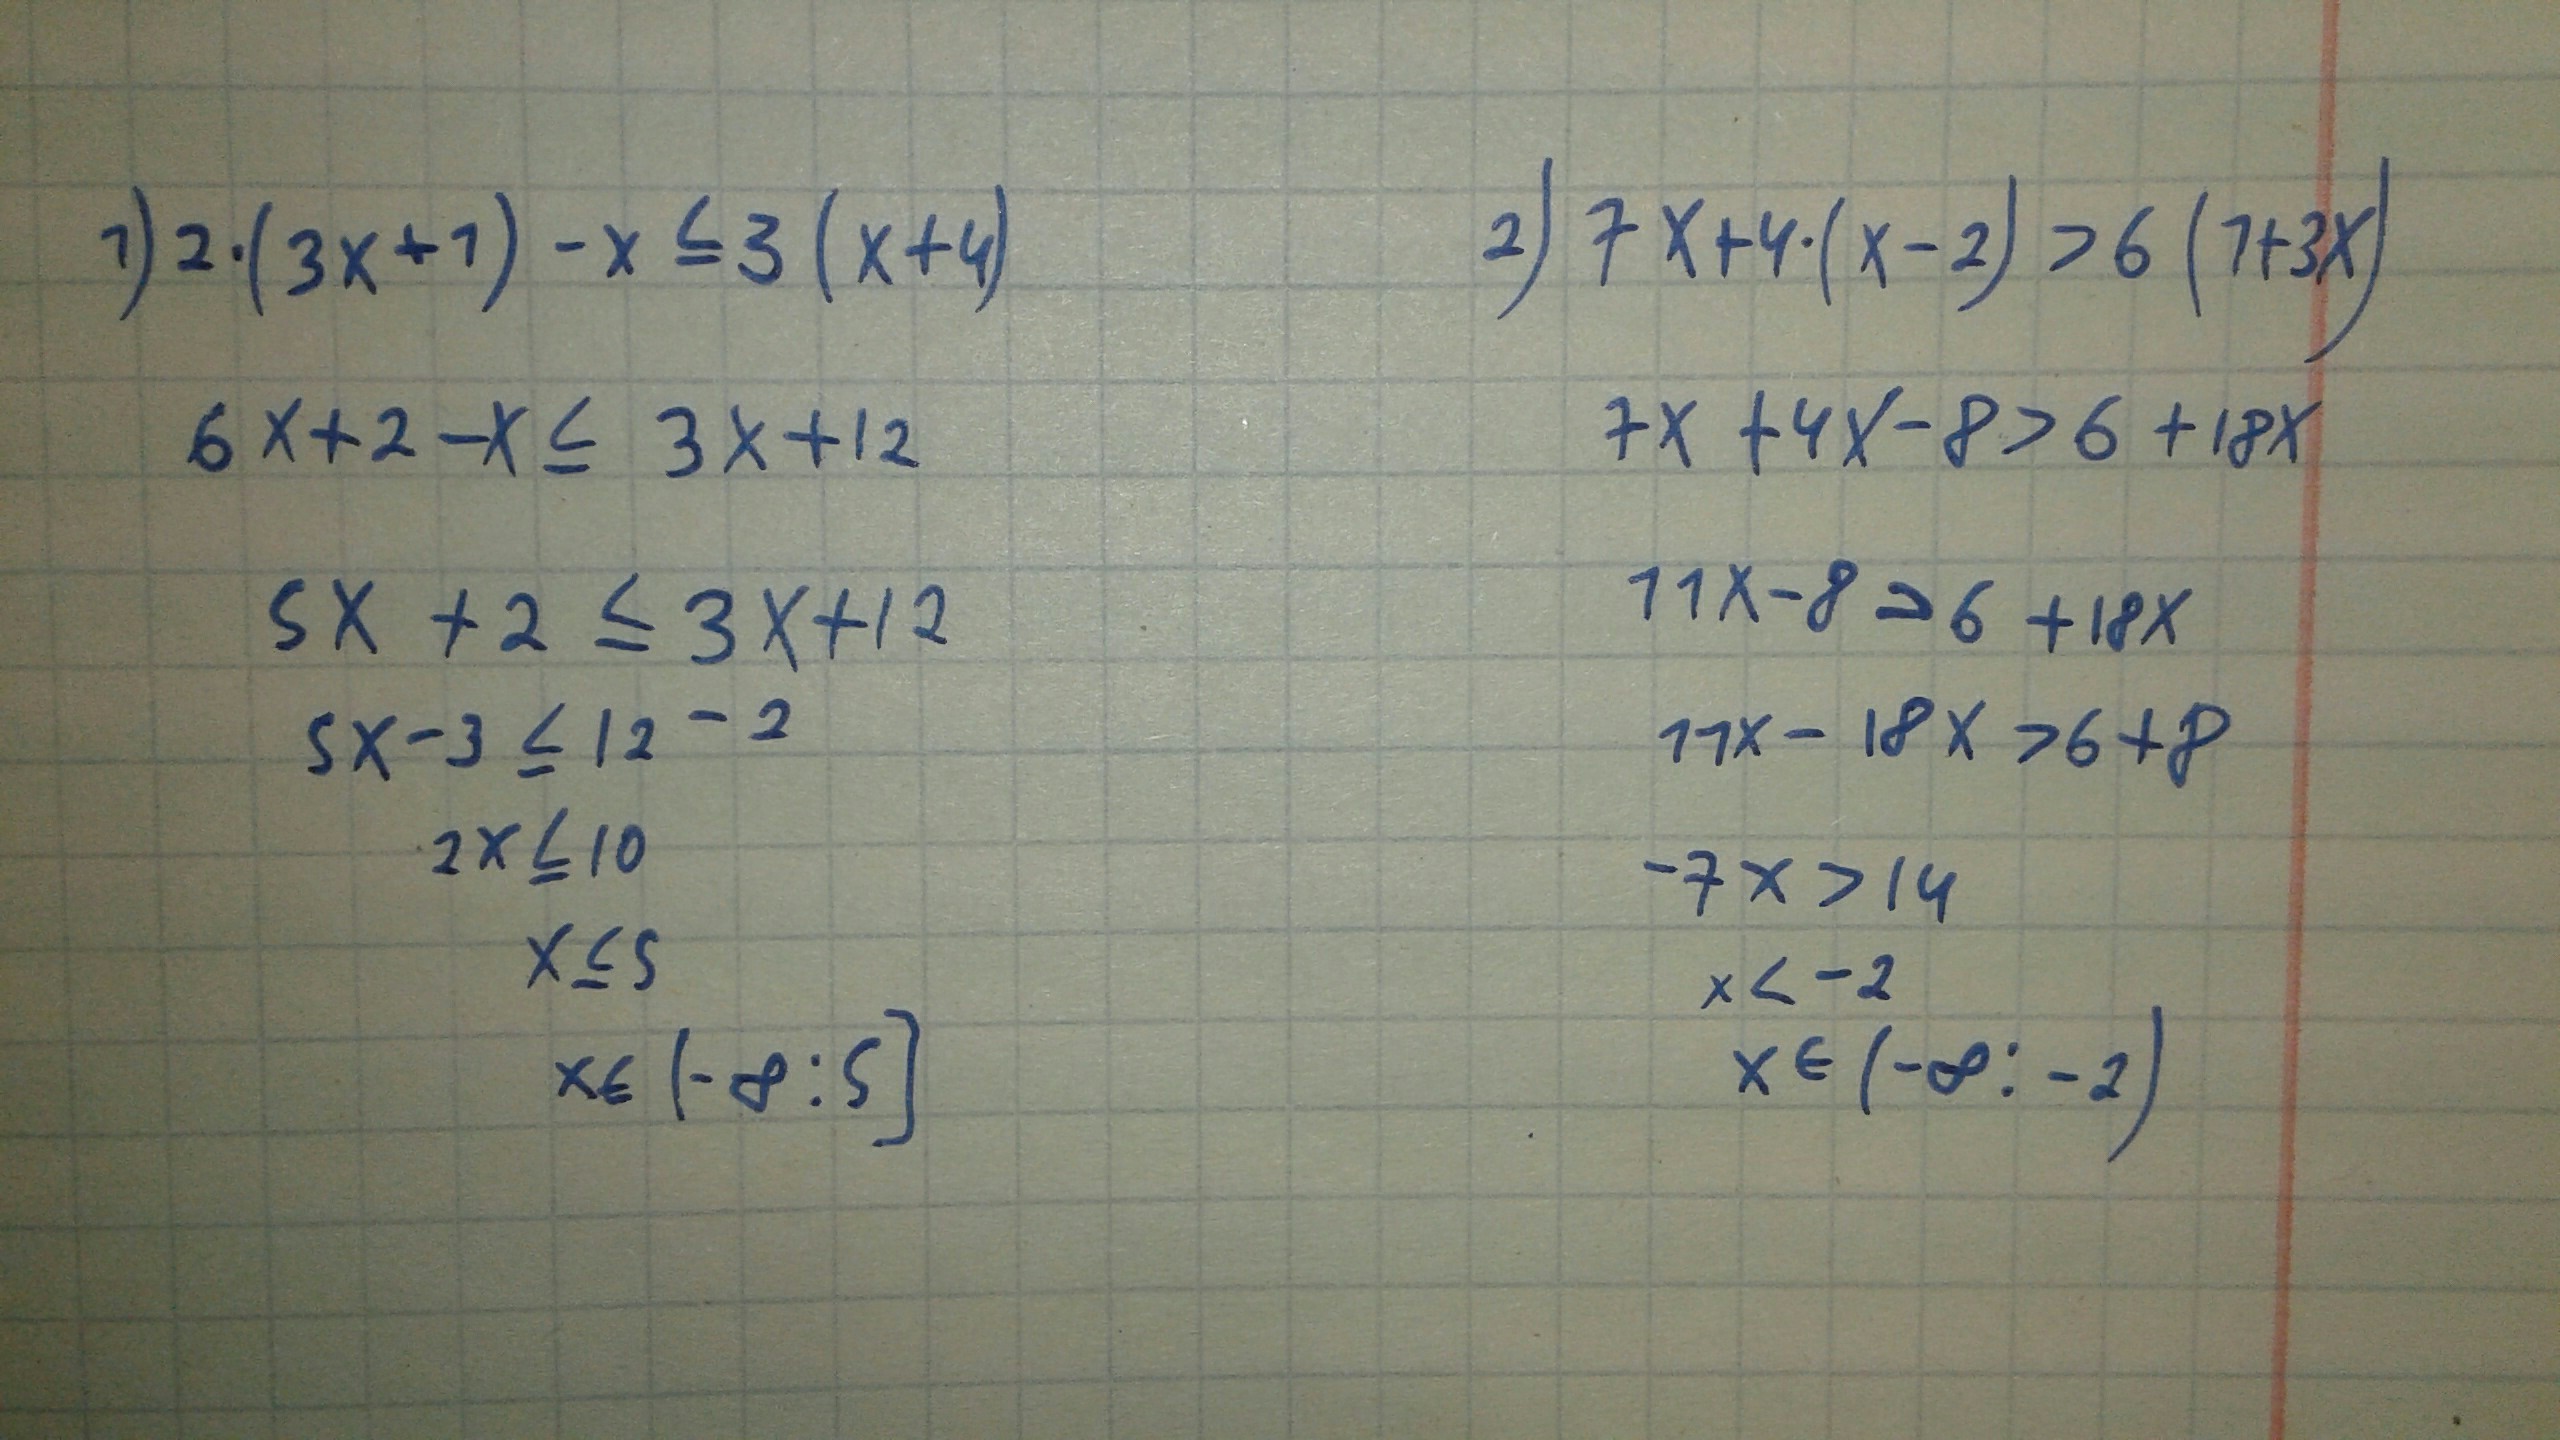 1) 2·(3x+1) -x ≤ 3 (x+4)
6x+2-x ≤ 3x+12
5x +2 ≤ 3x+12
5x-3 ≤ 12-2
2x ≤ 10
x ≤ 5
x∈(-∞:5]
2) 7x+4·(x-2) > 6 (1+3x)
7x +4x-8 > 6 +18x
11x-8 > 6 +18x
11x- 18x > 6+8
-7x > 14
x < -2
x∈(-∞: -2)